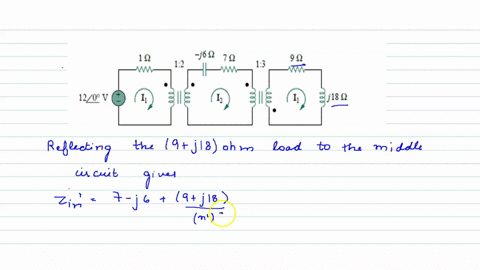 1 Ω 1:2 -j6 Ω 7 Ω 1:3 9 Ω
12/0° V I₁ I₂ I₁ j18 Ω
Reflecting the (9+j18) ohm load to the middle
circuit gives
Zin' = 7-j6 + (9+j18)
(n')